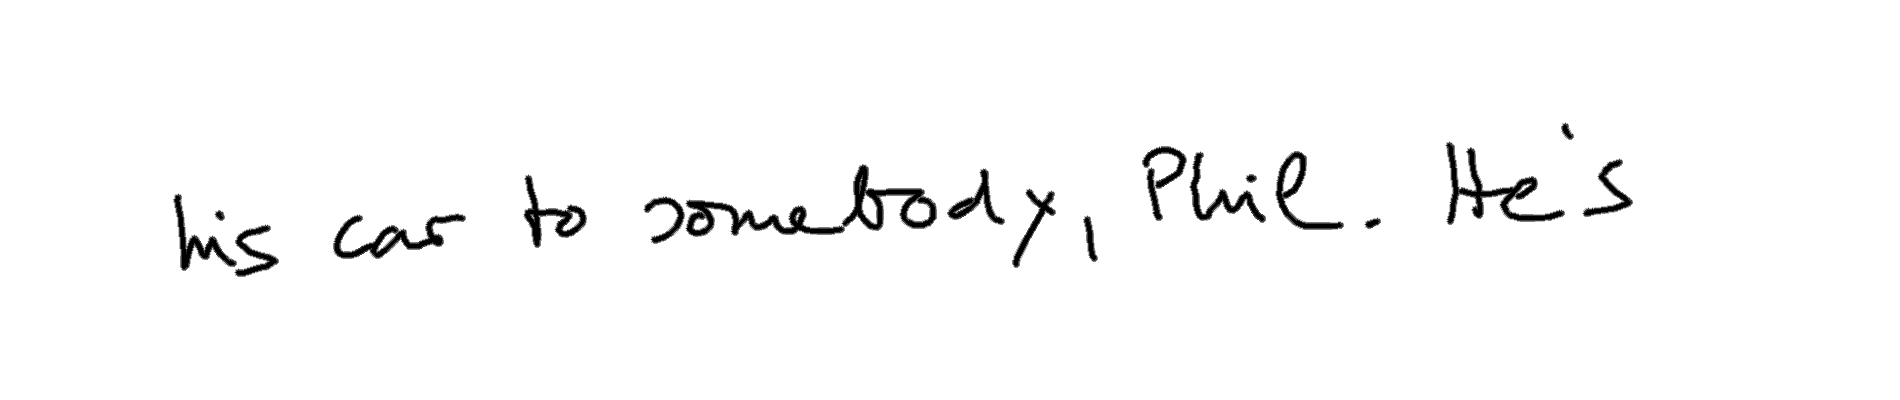 his car to somebody, Phil. He's